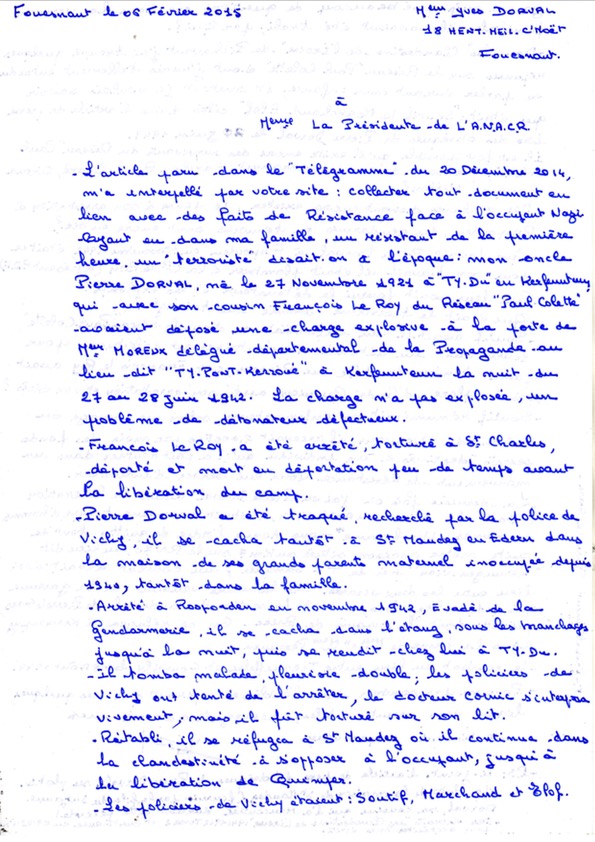 Fouesnant le 06 Février 2015
Mr Yves DORVAL
18 HENT. MEIL. C'Hoët
Fouesnant.
à
La Présidente de L'A.N.A.C.R.
- L'article paru dans le "Télégramme" du 20 Décembre 2014,
m'a interpellé par votre site : collecter tout document en
lien avec des faits de Résistance face à l'occupant Nazi
Ayant eu dans ma famille, un résistant de la première
heure, un "terroriste" disait.on à l'époque : mon oncle
Pierre DORVAL, né le 27 Novembre 1921 à "TY.Du" en Kerfeunteun,
qui avec son cousin François Le Roy du Réseau "Paul Colette"
avaient déposé une charge explosive à la porte de
Mr MOREUX délégué départemental de la Propaganda au
lieu-dit "TY.PONT-Kerroué" à Kerfeunteun la nuit du
27 au 28 juin 1942. La charge n'a pas explosée, un
problème de détonateur défectueux.
- François Le Roy a été arrêté, torturé à St Charles,
déporté et mort en déportation peu de temps avant
la libération du camp.
- Pierre Dorval a été traqué, recherché par la police de
Vichy, il se cacha tantôt à St Maudez en Edern dans
la maison de ses grands parents maternel inoccupée depuis
1940, tantôt dans la famille.
- Arrêté à Rosporden en novembre 1942, évadé de la
Gendarmerie, il se cacha dans l'étang, sous les branchages
jusqu'à la nuit, puis se rendit chez lui à TY.Du.
- Il tomba malade, pleurésie double ; les policiers de
Vichy ont tenté de l'arrêter, le docteur Cornic s'interposa
vivement, mais il fût torturé sur son lit.
- Rétabli, il se réfugia à St Maudez où il continue dans
la clandestinité à s'opposer à l'occupant, jusqu'à
la libération de Quimper.
- Les policiers de Vichy étaient : Soutif, Marchand et